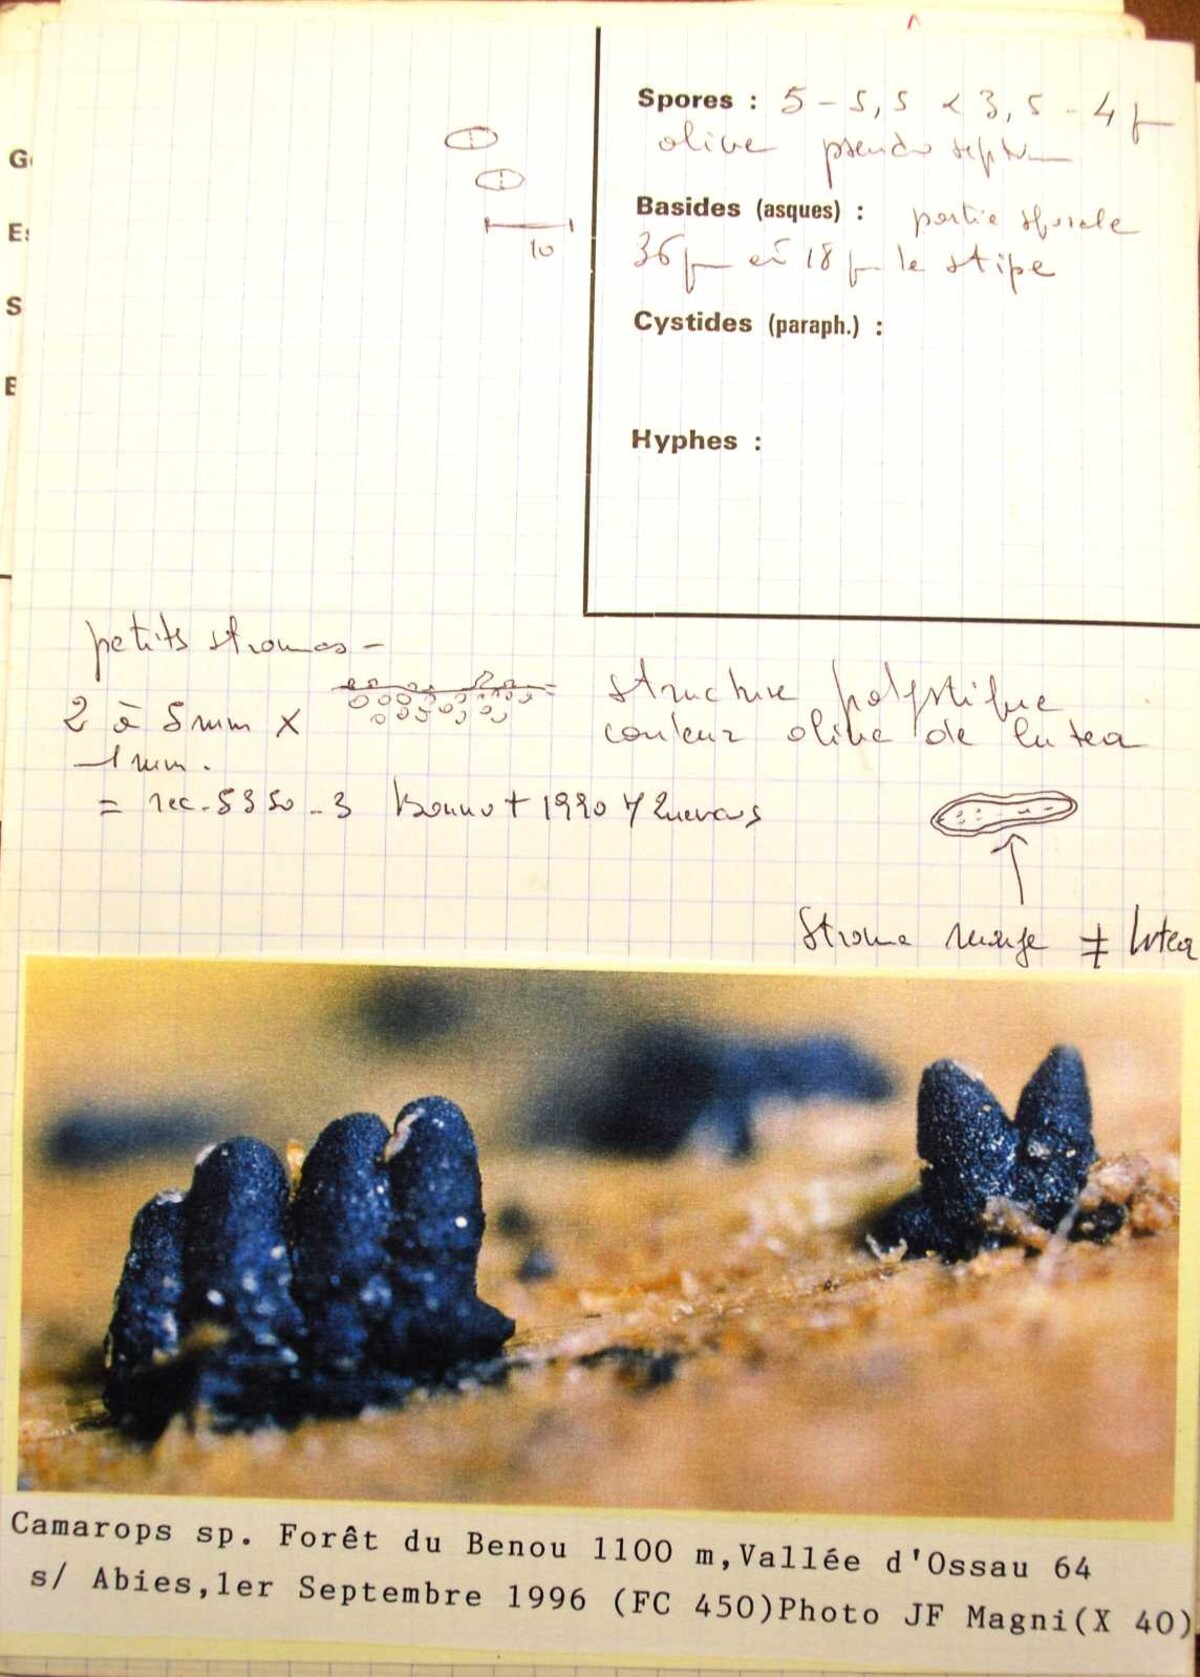 G
Es
S
E
10
Spores : 5 - 5,5 < 3,5 - 4 µ
olive pseudo septum
Basides (asques) : partie sporale
36 µ et 18 µ le stipe
Cystides (paraph.) :
Hyphes :
petits stromas -
2 à 5 mm x
1 mm.
structure polystique
couleur olive de lutea
= rec. 5350-3 Bonnot 1990
Stroma ≠ lutea
Camarops sp. Forêt du Benou 1100 m,Vallée d'Ossau 64
s/ Abies,1er Septembre 1996 (FC 450)Photo JF Magni(X 40)